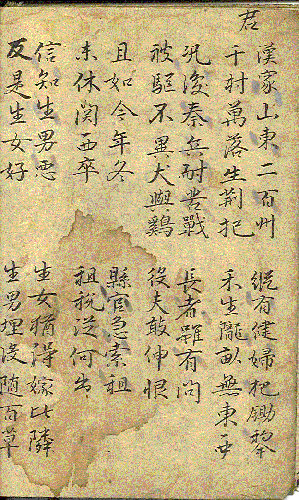 君
漢家山東二百州
千村萬落生荊杞
縱有健婦把鋤犂
禾生隴畝無東西
況復秦兵耐苦戰
被驅不異犬與鷄
長者雖有問
役夫敢伸恨
且如今年冬
未休関西卒
縣官急索租
租稅從何出
信知生男惡
反是生女好
生女猶得嫁比隣
生男埋沒隨百草